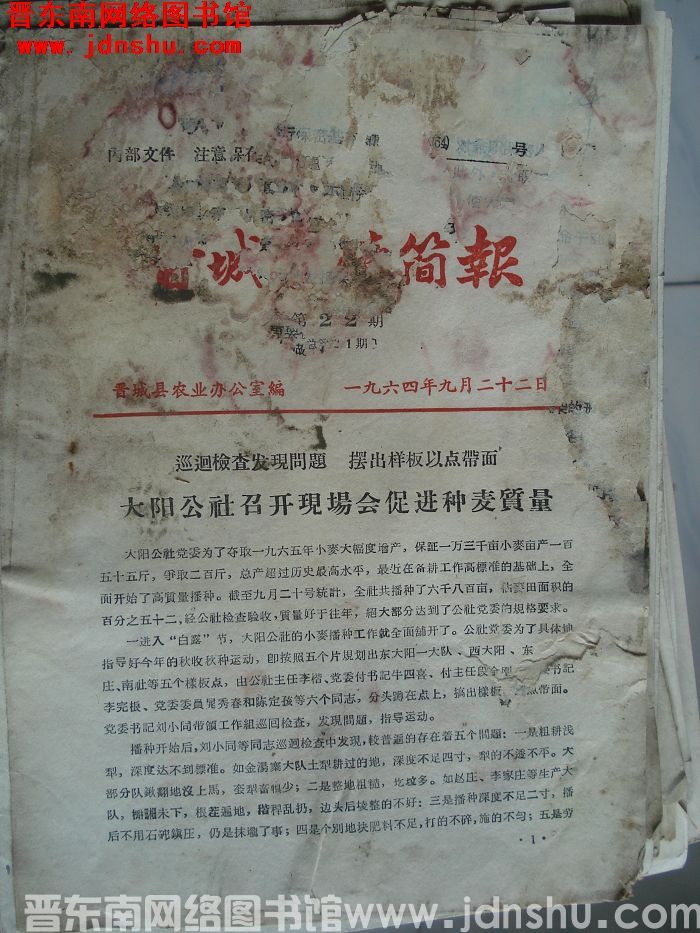 晋东南网络图书馆
www.jdnshu.com
内部文件 注意保存
(64) 号
城 简報
第22期
晋城县农业办公室編 一九六四年九月二十二日
巡迴檢查发現問題 摆出样板以点帶面
大阳公社召开現場会促进种麦質量
大阳公社党委为了夺取一九六五年小麥大幅度增产，保証一万三千亩小麥亩产一百
五十五斤，爭取二百斤，总产超过历史最高水平，最近在备耕工作高標准的基础上，全
面开始了高質量播种。截至九月二十号統計，全社共播种了六千八百亩，佔麥田面积的
百分之五十二，经公社检查驗收，質量好于往年，絕大部分达到了公社党委的規格要求。
一进入“白露”节，大阳公社的小麥播种工作就全面舖开了。公社党委为了具体地
指导好今年的秋收秋种运动，卽按照五个片規划出东大阳一大队、西大阳、东
庄、南社等五个樣板点，由公社主任李楷、党委付书記牛四喜、付主任段 书記
李完根、党委委員晁秀春和陈定孩等六个同志，分头蹲在点上，搞出樣板 点帶面。
党委书記刘小同带領工作組巡囘检查，发現問題，指导运动。
播种开始后，刘小同等同志巡迴检查中发現，較普遍的存在着五个問題：一是粗耕浅
犁，深度达不到標准。如金湯寨大队土犁耕过的地，深度不足四寸，犁的不透不平。大
部分队鍬翻地沒上馬，套犁畜很少；二是整地粗糙，圪垃多。如赵庄、李家庄等生产大
队， 未下，根茬遍地，稭稈乱扔，边头后堎整的不好；三是播种深度不足二寸，播
后不用石砘鎭压，仍是抹壠了事；四是个别地块肥料不足，打的不碎，施的不匀；五是劳
·1·
晋东南网络图书馆 www.jdnshu.com